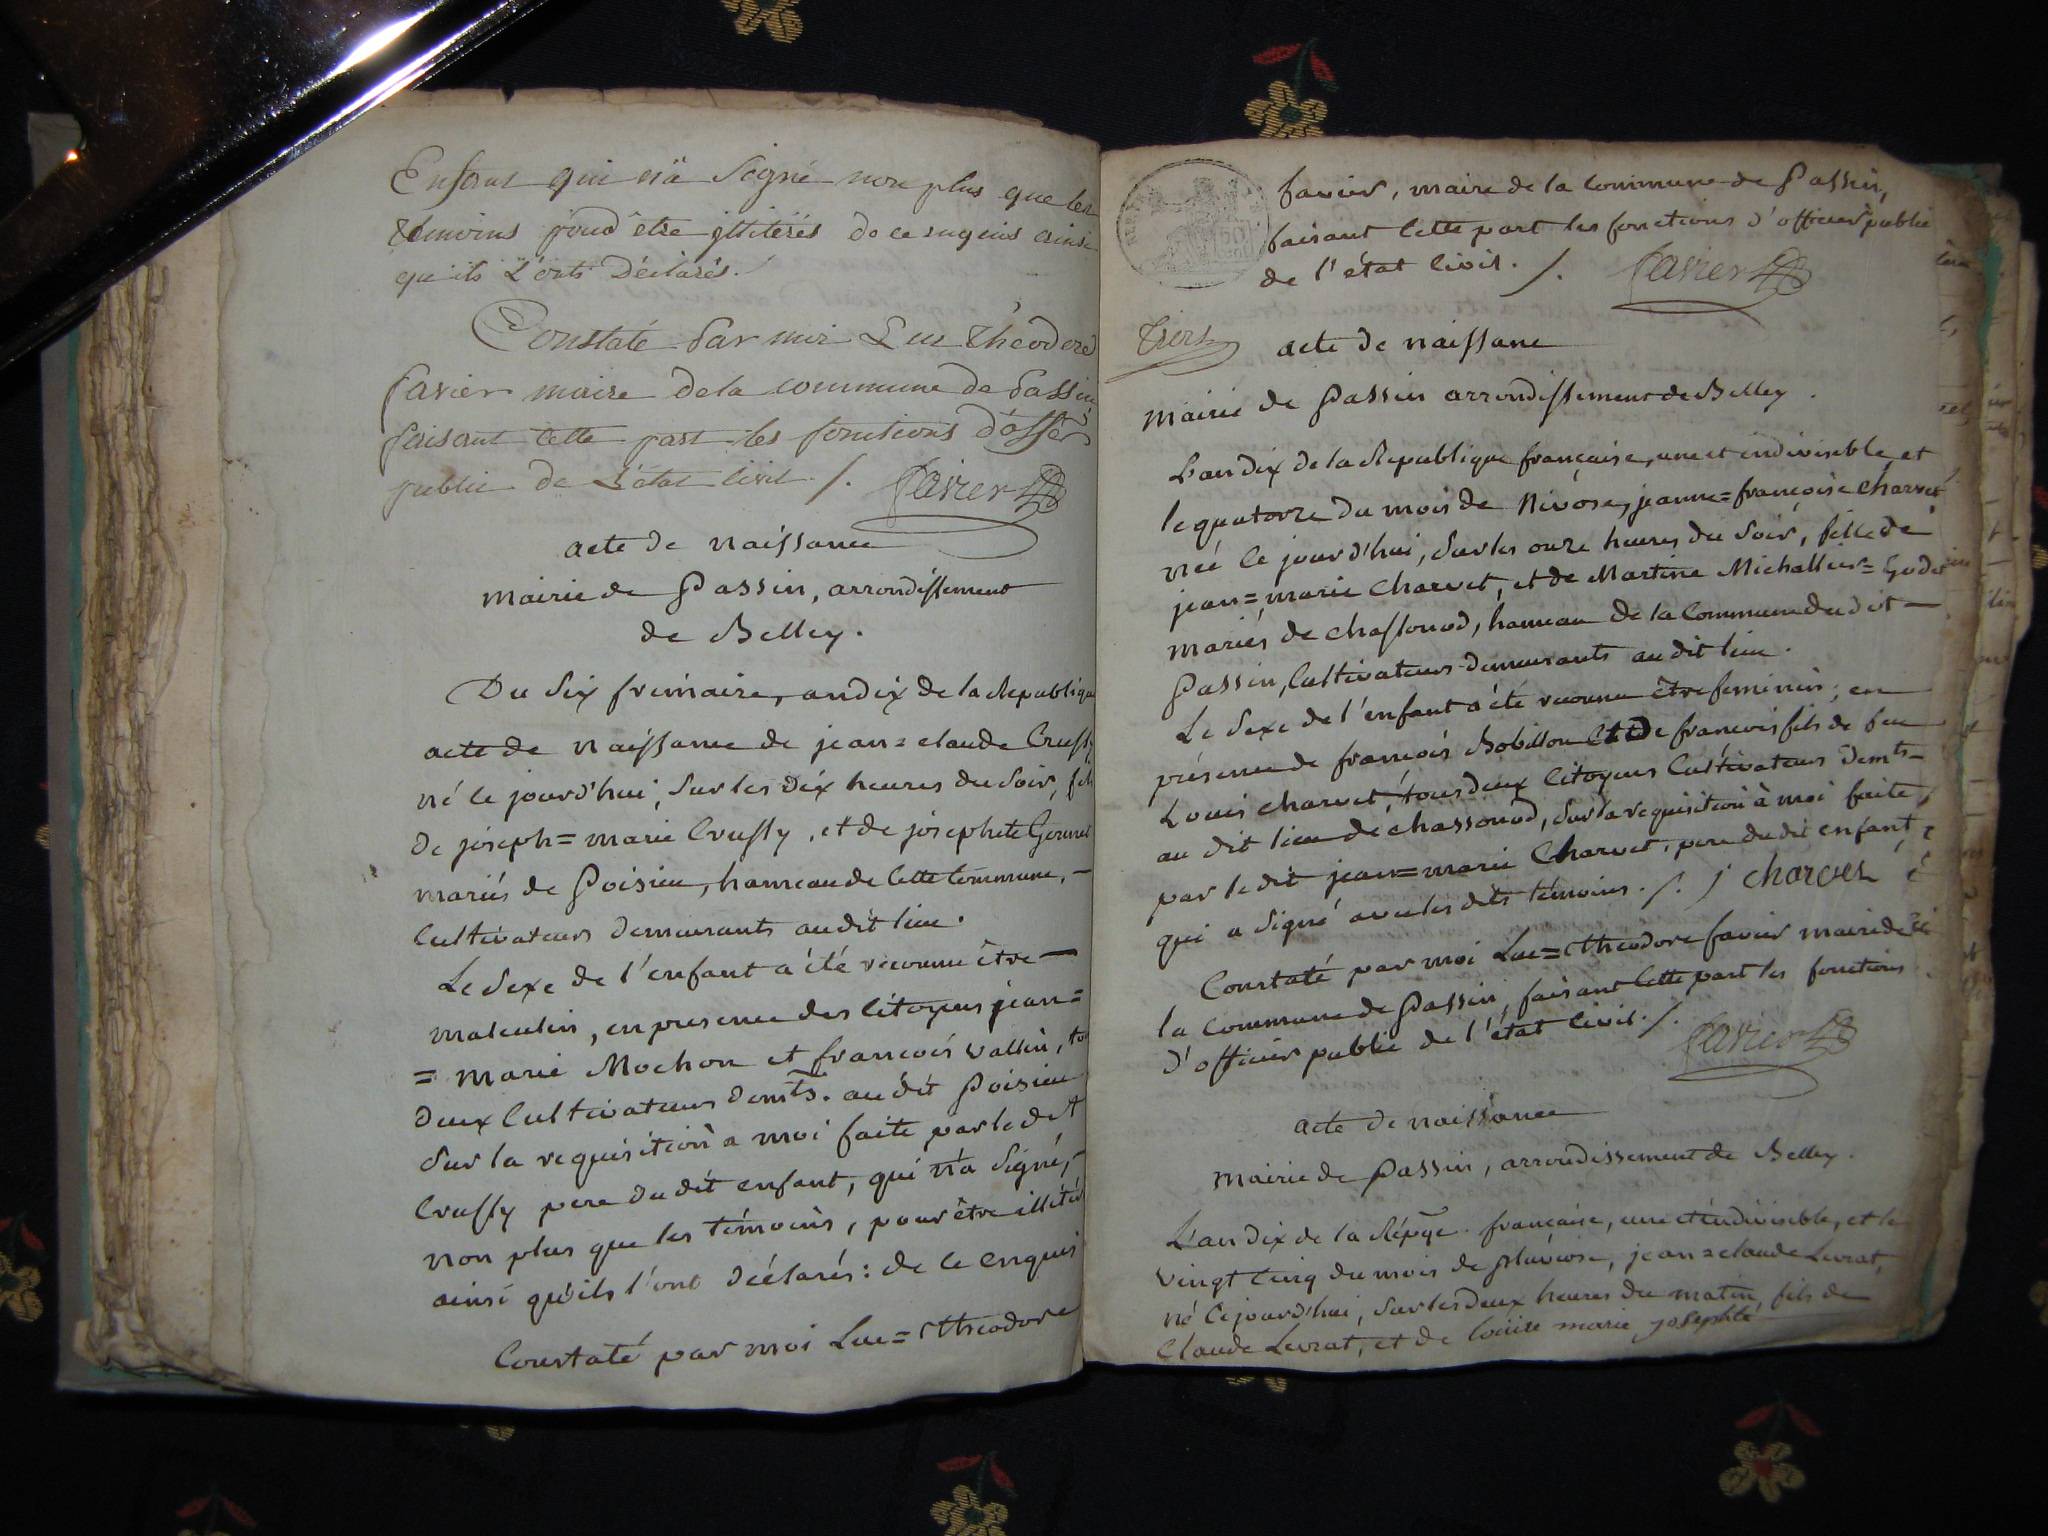 Enfant qui n'a Signé non plus que les
témoins pour être illiterés de ce enquis ainsi
qu'ils L'onts Déclarés.
Constaté Par moi Luc Théodore
favier maire de la commune de Passin
faisant cette part les fonctions d'offer
public de L'état Civil ./. favier
acte de naissance
Mairie de Passin, arrondissement
de Belley.
Du Six frimaire, an dix de la Republique
acte de naissance de jean=claude Crussy
né le jourd'hui, sur les Dix heures du Soir, fils
de joseph=marie Crussy, et de josephte
mariés de Poisieu, hameau de Cette Commune,
Cultivateurs demeurants au dit lieu.
Le Sexe de l'enfant a été reconnu être
masculin, en presence des Citoyens jean=
=marie Mochon et francois Vallin, tous
deux Cultivateurs demts. au dit Poisieu
Sur la requisition a moi faite par le dit
Crussy pere du dit enfant, qui n'a Signé,
non plus que les témoins, pour être illitérés
ainsi qu'ils l'ont déclarés: de Ce enquis
Constaté par moi Luc=Théodore
favier, maire de la Commune de Passin,
faisant Cette part les fonctions d'officier public
de l'état Civil. ./. favier
acte de naissance
Mairie de Passin arrondissement de Belley.
L'an dix de la Republique française, une et indivisible, et
le quatorze du mois de Nivôse, jeanne=françoise Charvet
née Ce jourd'hui, sur les onze heures du Soir, fille de
jean=marie Charvet, et de Martine Michallier=Godet
mariés de Chassonod, hameau de la Commune du dit
Passin, Cultivateurs demeurants au dit lieu.
Le Sexe de l'enfant a été reconnu être feminin; en
présence de francois Bobillon et de francois fils de feu
Louis Charvet, tous deux Citoyens Cultivateurs demts
au dit lieu de Chassonod, Sur la requisition à moi faite
par le dit jean=marie Charvet, pere du dit enfant,
qui a Signé avec les dits témoins ./. j charvet
Constaté par moi Luc=Théodore favier maire de
la Commune de Passin, faisant Cette part les fonctions
d'officier public de l'état Civil ./. favier
acte de naissance
Mairie de Passin, arrondissement de Belley.
L'an dix de la Répqe. française, une et indivisible, et le
vingt Cinq du mois de pluviose, jean=claude Levrat,
né Ce jourd'hui, Sur les deux heures du matin, fils de
Claude Levrat, et de louise marie josephte